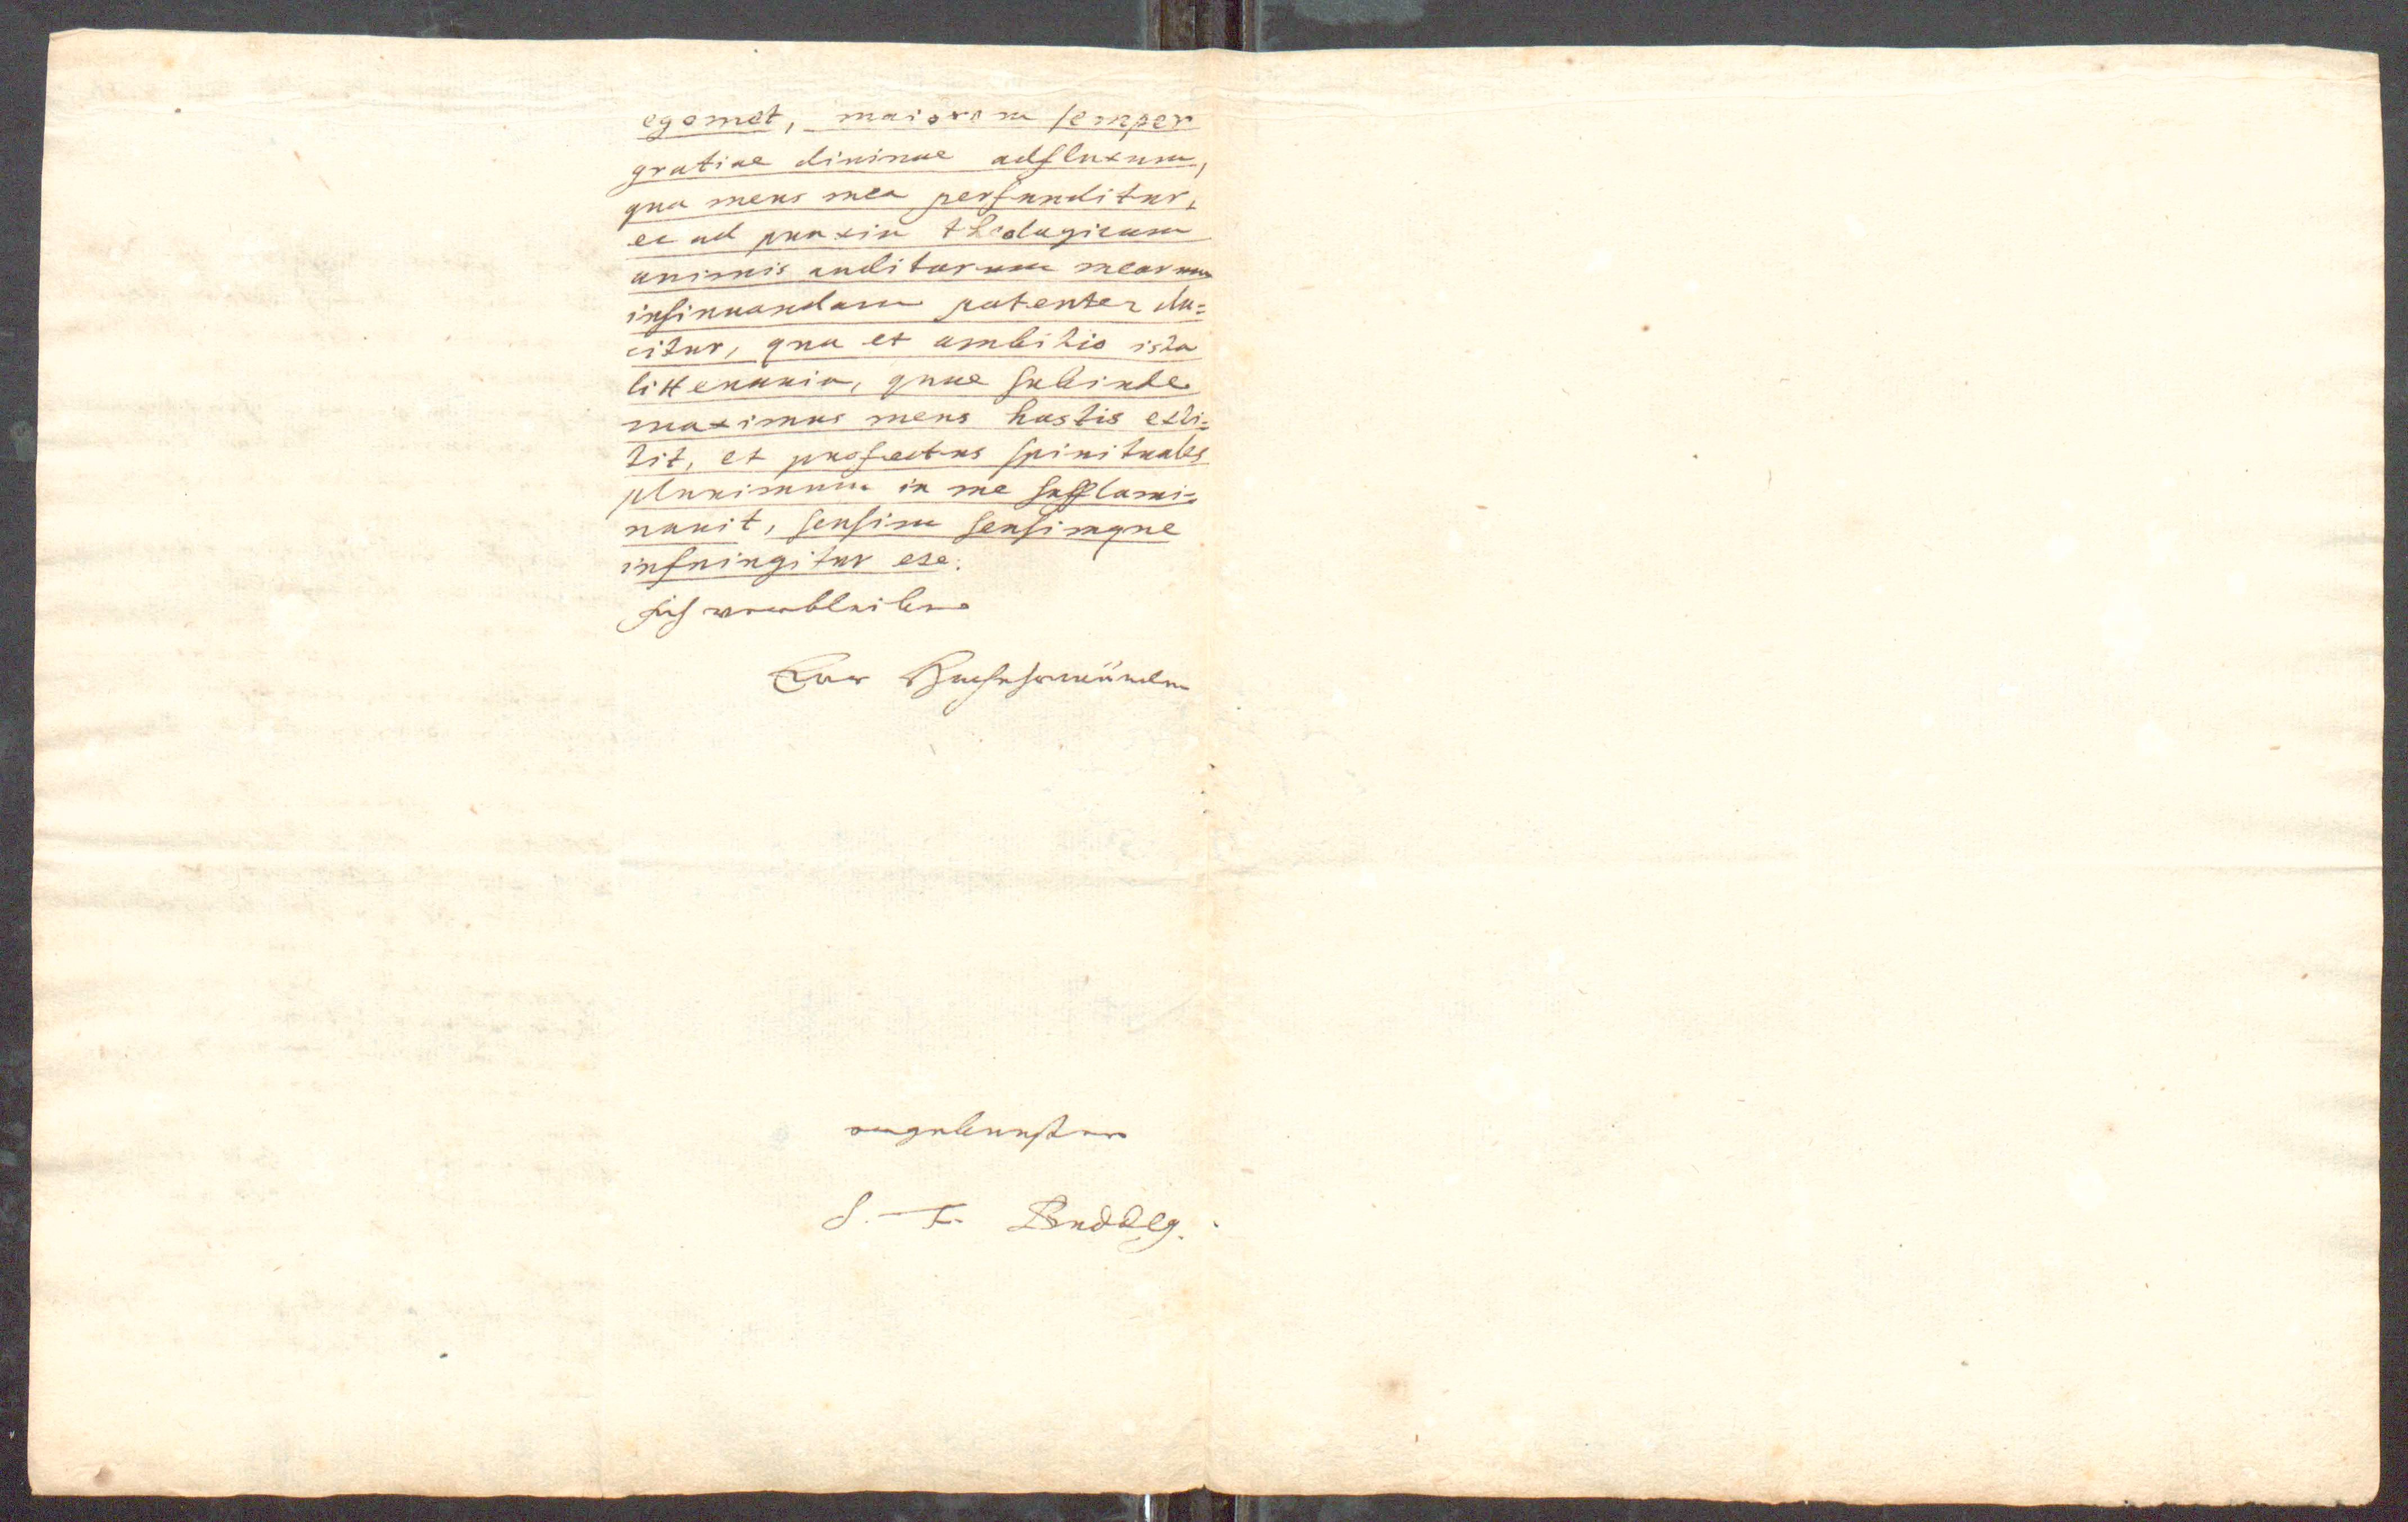 egomet, maiorem semper
gratiae diuinae adfluxum,
qua mens mea perfunditur,
et ad praxin theologicam
animis auditorum meorum
insinuandam potenter du=
citur, qua et ambitio ista
litteraria, quae subinde
maximus meus hostis exti=
tit, et profectus spirituales
plurimum in me sufflami=
nauit, sensim sensimque
infringitur etc.
Ich verbleibe
Euer Hochehrwürden
ergebenster
S. F. Buddeg.